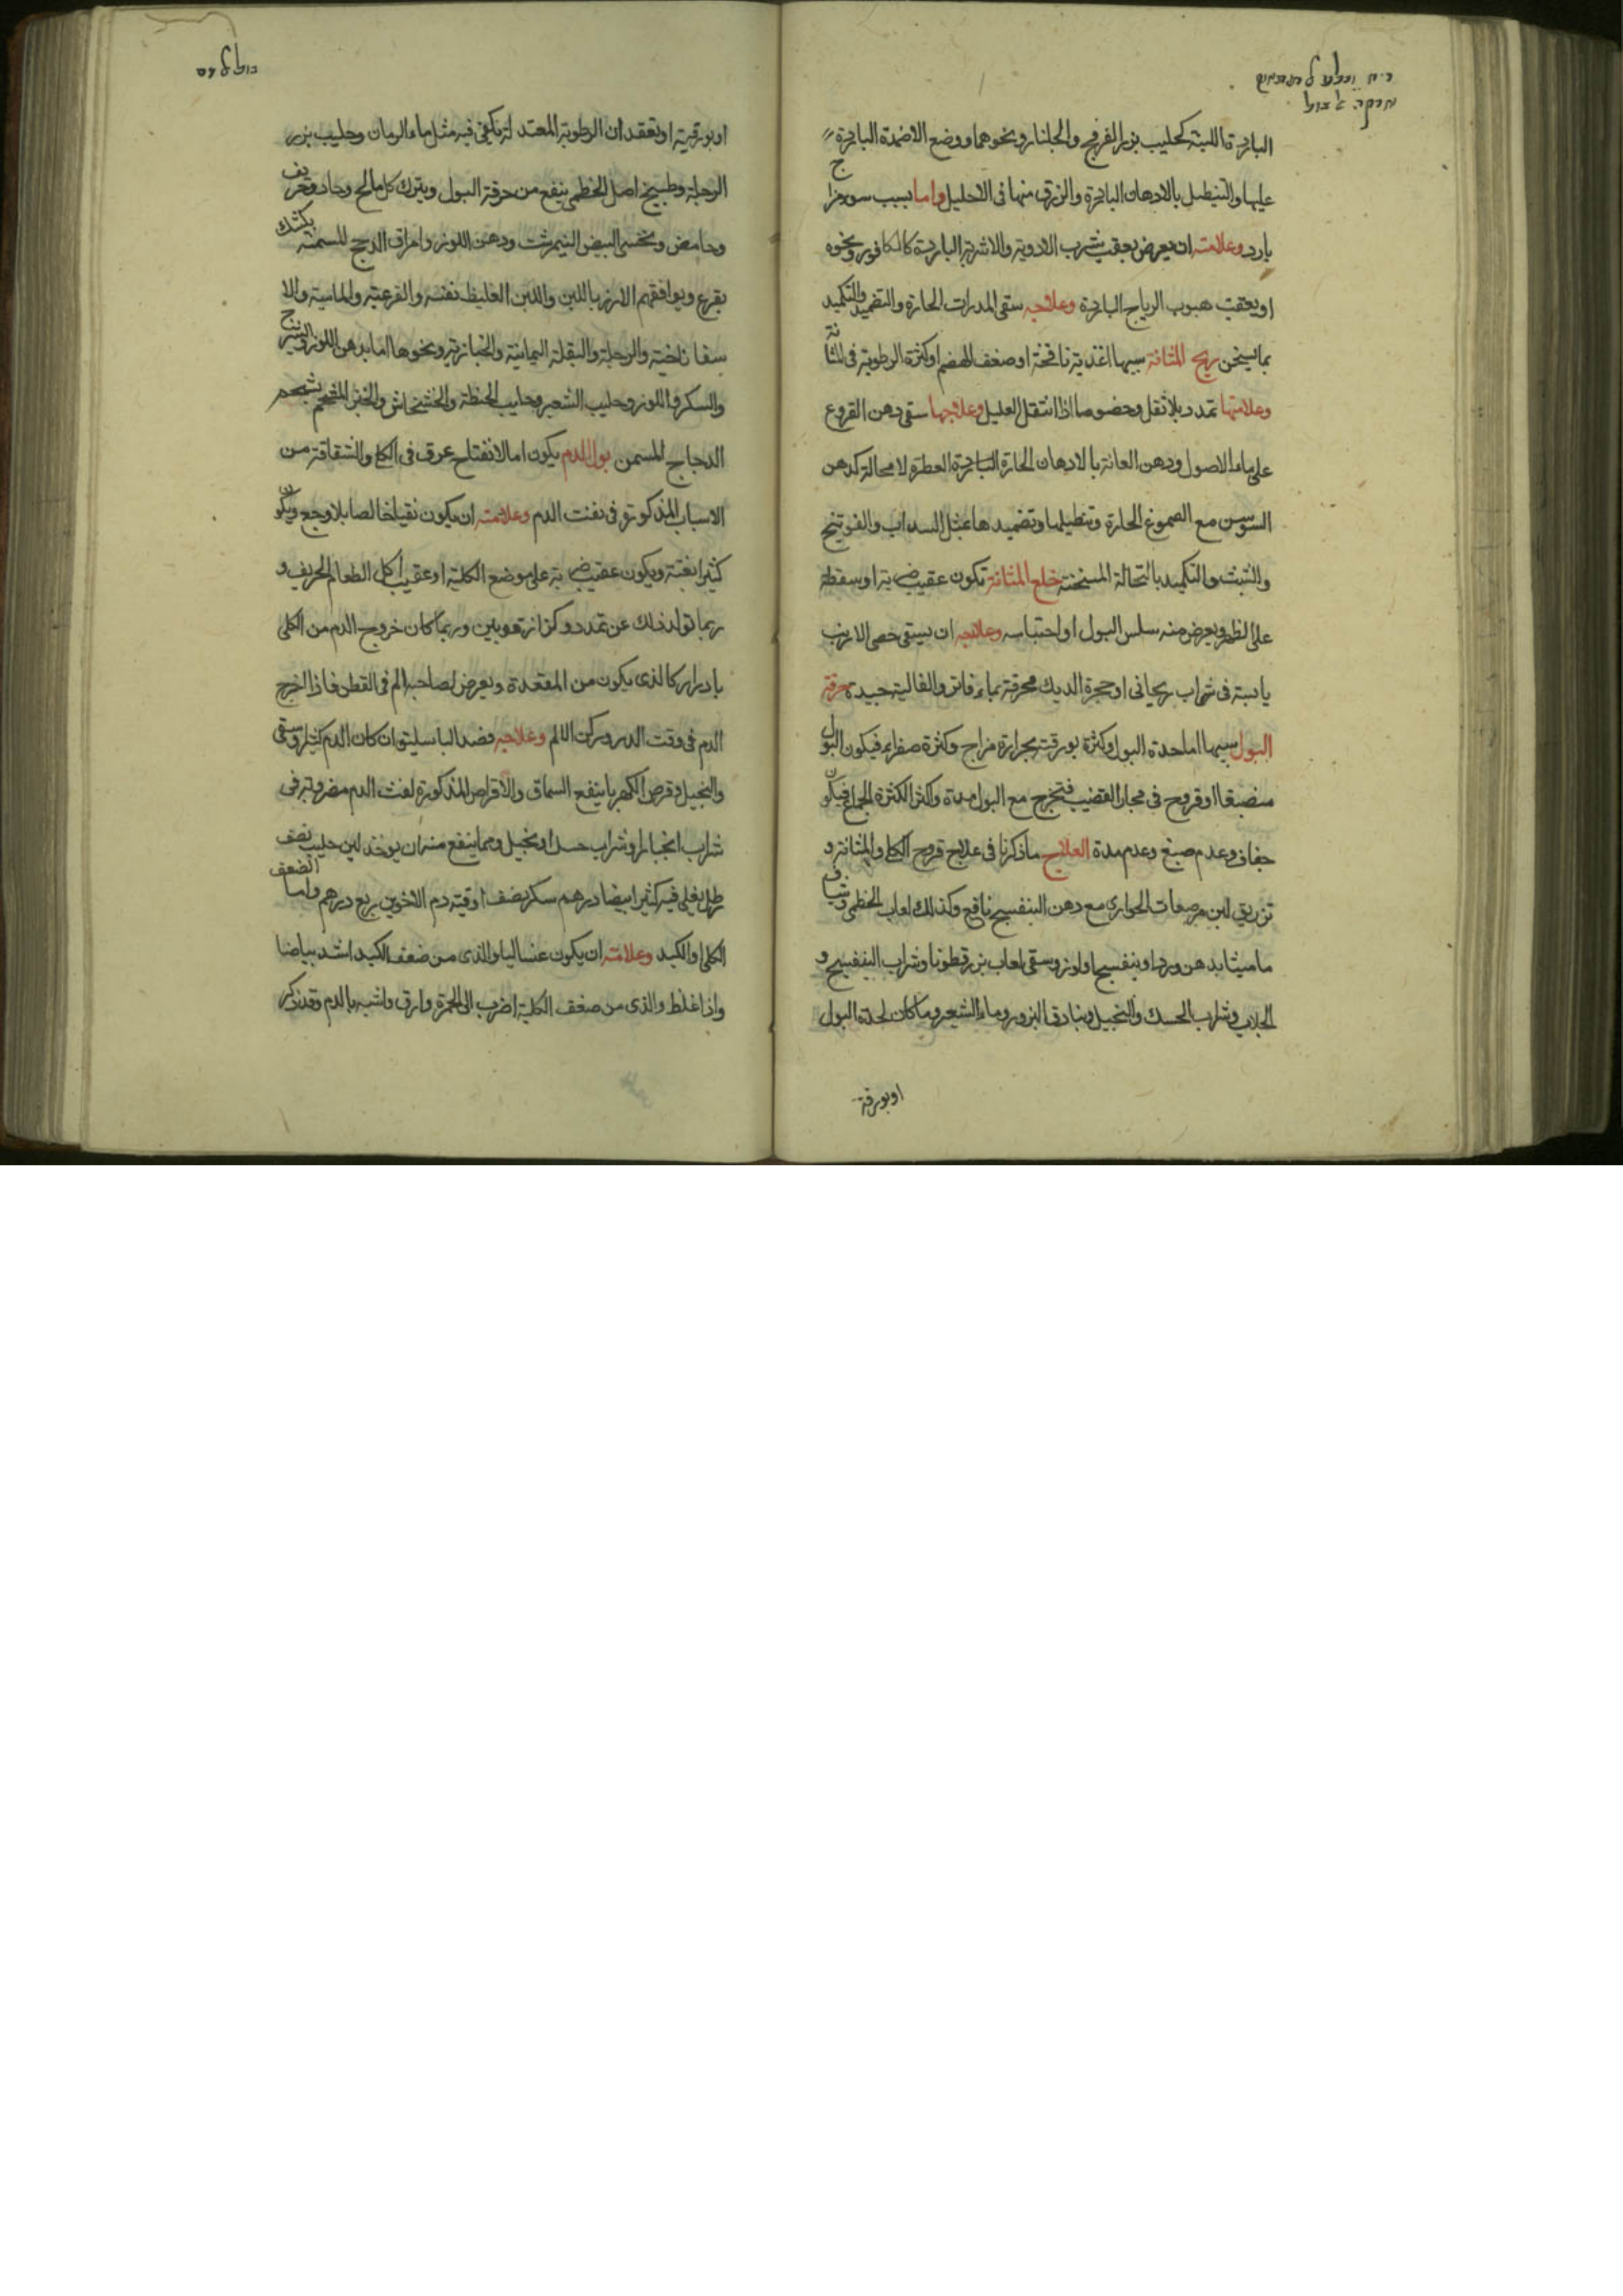 الباردة اللينة كحليب بزر الفرفخ والجلنار ونحوهما ووضع الاضمدة الباردة
عليها والتنطيل بالادهان الباردة والزرق منها فى الاحليل واما بسبب سوء مزاج
بارد وعلامته ان يعرض بعقب شرب الادوية والاشربة الباردة كالكافور ونحوه
او بعقب هبوب الرياح الباردة وعلاجه سقى المدرات الحارة والتضميد والتكميد
بما يسخن ريح المثانة سببها اغذية نافخة او ضعف الهضم او كثرة الرطوبة فى المثانة
وعلامتها تمدد بلا ثقل وخصوصا اذا انتقل العليل وعلاجها سقى دهن الخروع
على ماء الاصول ودهن العانة بالادهان الحارة العطرة لا محالة كدهن
السوسن مع الصموغ الحارة وتنطيلها وتضميدها بمثل السداب والفوتنج
والشبث والتكميد بالنخالة المسخنة خلع المثانة تكون عقيب ضربة او سقطة
على الظهر ويعرض منه سلس البول او احتباسه وعلاجه ان يسقى خصى الارنب
يابسة فى شراب ريحانى او حجرة الديك محرقة بماء فاتر والغالية جيدة حرقة
البول سببها اما حدة البول وكثرة بورقيته بحرارة مزاج وكثرة صفراء فيكون البول
منصبغا او قروح فى مجارى القضيب فتخرج مع البول مدة واكثر لكثرة الجماع فيكون
جفاف وعدم صبغ وعدم مدة العلاج ما ذكرنا فى علاج قروح الكلى والمثانة و
تزريق لبن مرضعات الجوارى مع دهن البنفسج نافع وكذلك لعاب الخطمى وشياف
ماميثا بدهن ورد او بنفسج او لوز وسقى لعاب بزر قطونا وشراب البنفسج و
الجلاب وشراب الحسك والنجيل وبنادق البزور وماء الشعير وما كان لحدة البول
او بورقية
او بورقية او بفقدان الرطوبة المعتدلة يكفى فيه مثل ماء الرمان وحليب بزر
الرجلة وطبيخ اصل الخطمى ينفع من حرقة البول ويترك كل مالح وحاد وحريف
وحامض ويحسى البيض النيمرشت ودهن اللوز وامراق الدجج المسمنة
بقرع ويوافقهم الارز باللبن واللبن الغليظ نفسه والقرعية والماسية والا
سفاناخية والرجلة والبقلة اليمانية والخبازية ونحوها اما بدهن اللوز او الشيرج
والسكر واللوز وحليب الشعير وحليب الحنطة والخشخاش والخبز المشحم بشحم
الدجاج المسمن بول الدم يكون اما لانفتاح عرق فى الكلى وانشقاقه من
الاسباب المذكورة فى نفث الدم وعلامته ان يكون نقيا خالصا بلا وجع ويكون
كثيرا بغتة ويكون عقيب ضربة على موضع الكلية او عقيب اكل الطعام الحريف و
ربما تولد ذلك عن تمدد وكزاز وربما كان خروج الدم من الكلى
بادرار كالذى يكون من المقعدة ويعرض لصاحبه الم فى القطن فاذا خرج
الدم فى وقت الدور سكن الالم وعلاجه فصد الباسليق ان كان الدم كثيرا وسقى
والنجيل وقرص الكهربا ينفع السماق والاقراص المذكورة لنفث الدم مضروبة فى
شراب انجبار او شراب حسك او نجيل ومما ينفع منه ان يوخذ لبن حليب نصف
رطل يغلى فيه كثيرا بيضا درهم سكر نصف اوقية دم الاخوين ربع درهم واما لضعف
الكلى او الكبد وعلامته ان يكون غساليا والذى من ضعف الكبد اشد بياضا
واذا غلظ والذى من ضعف الكلية اضرب الى الحمرة وارق واشبه بالدم وقد ذكر